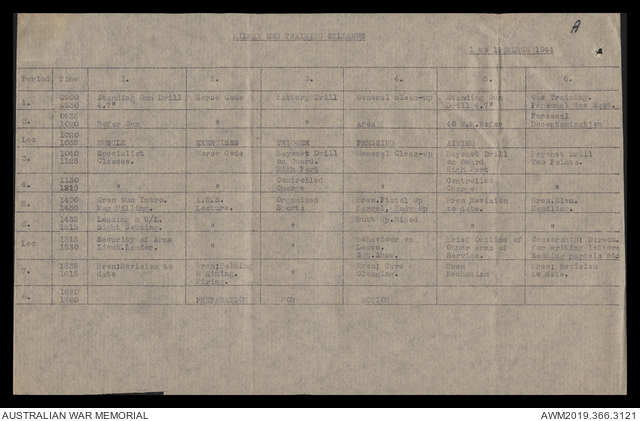 NCO TRAINING SYLLABUS
A
1 to 14 MARCH 1944
Period Time 1. 2. 3. 4. 5. 6.
1. 0900 0930 Standing Gun Drill 4.7" Morse Code Battery Drill General clean-up Standing Gun Drill 4.7" Gas Training. Personal Gas Eqpt.
2. 0935 Refer Gun " " Area 40 M.M.Refer Personal Decontamination
MUSCLE EXERCISES TRIGGER PRESSING AIMING
3. 1040 1125 Specialist Classes. Morse Code Bayonet Drill on Guard. High Port General Clean-up Bayonet Drill on Guard High Port Bayonet Drill Two Points.
4. 1130 1215 " " Controlled Charge " Controlled Charge "
5. 1400 1430 Bren Gun Intro. Mag Filling. Lecture. Organized Sports Bren.Pistol Gp Barrel, Body Gp Bren Revision to date. Bren.Elem. Handling.
6. 1435 1515 Loading & U/L. Sight Setting. " " Butt Gp.Biped " "
Lec 1515 1530 Security of Arms Lieut. " " Behaviour on Leave. Sgt. Brief Outline of Other arms of Service. Censorship; Direct. for writing letters Sending parcels etc
7. 1535 1615 Bren;Revision to date Bren;Holding & Aiming. Firing. " Bren; Care Cleaning. Bren Mechanism Bren; Revision to date.
8. 1620 1700 PREPARATION FOR ACTION
AUSTRALIAN WAR MEMORIAL
AWM2019.366.3121